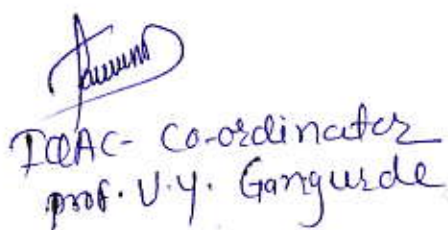 IQAC- Co-ordinator
prof. V.Y. Gangurde